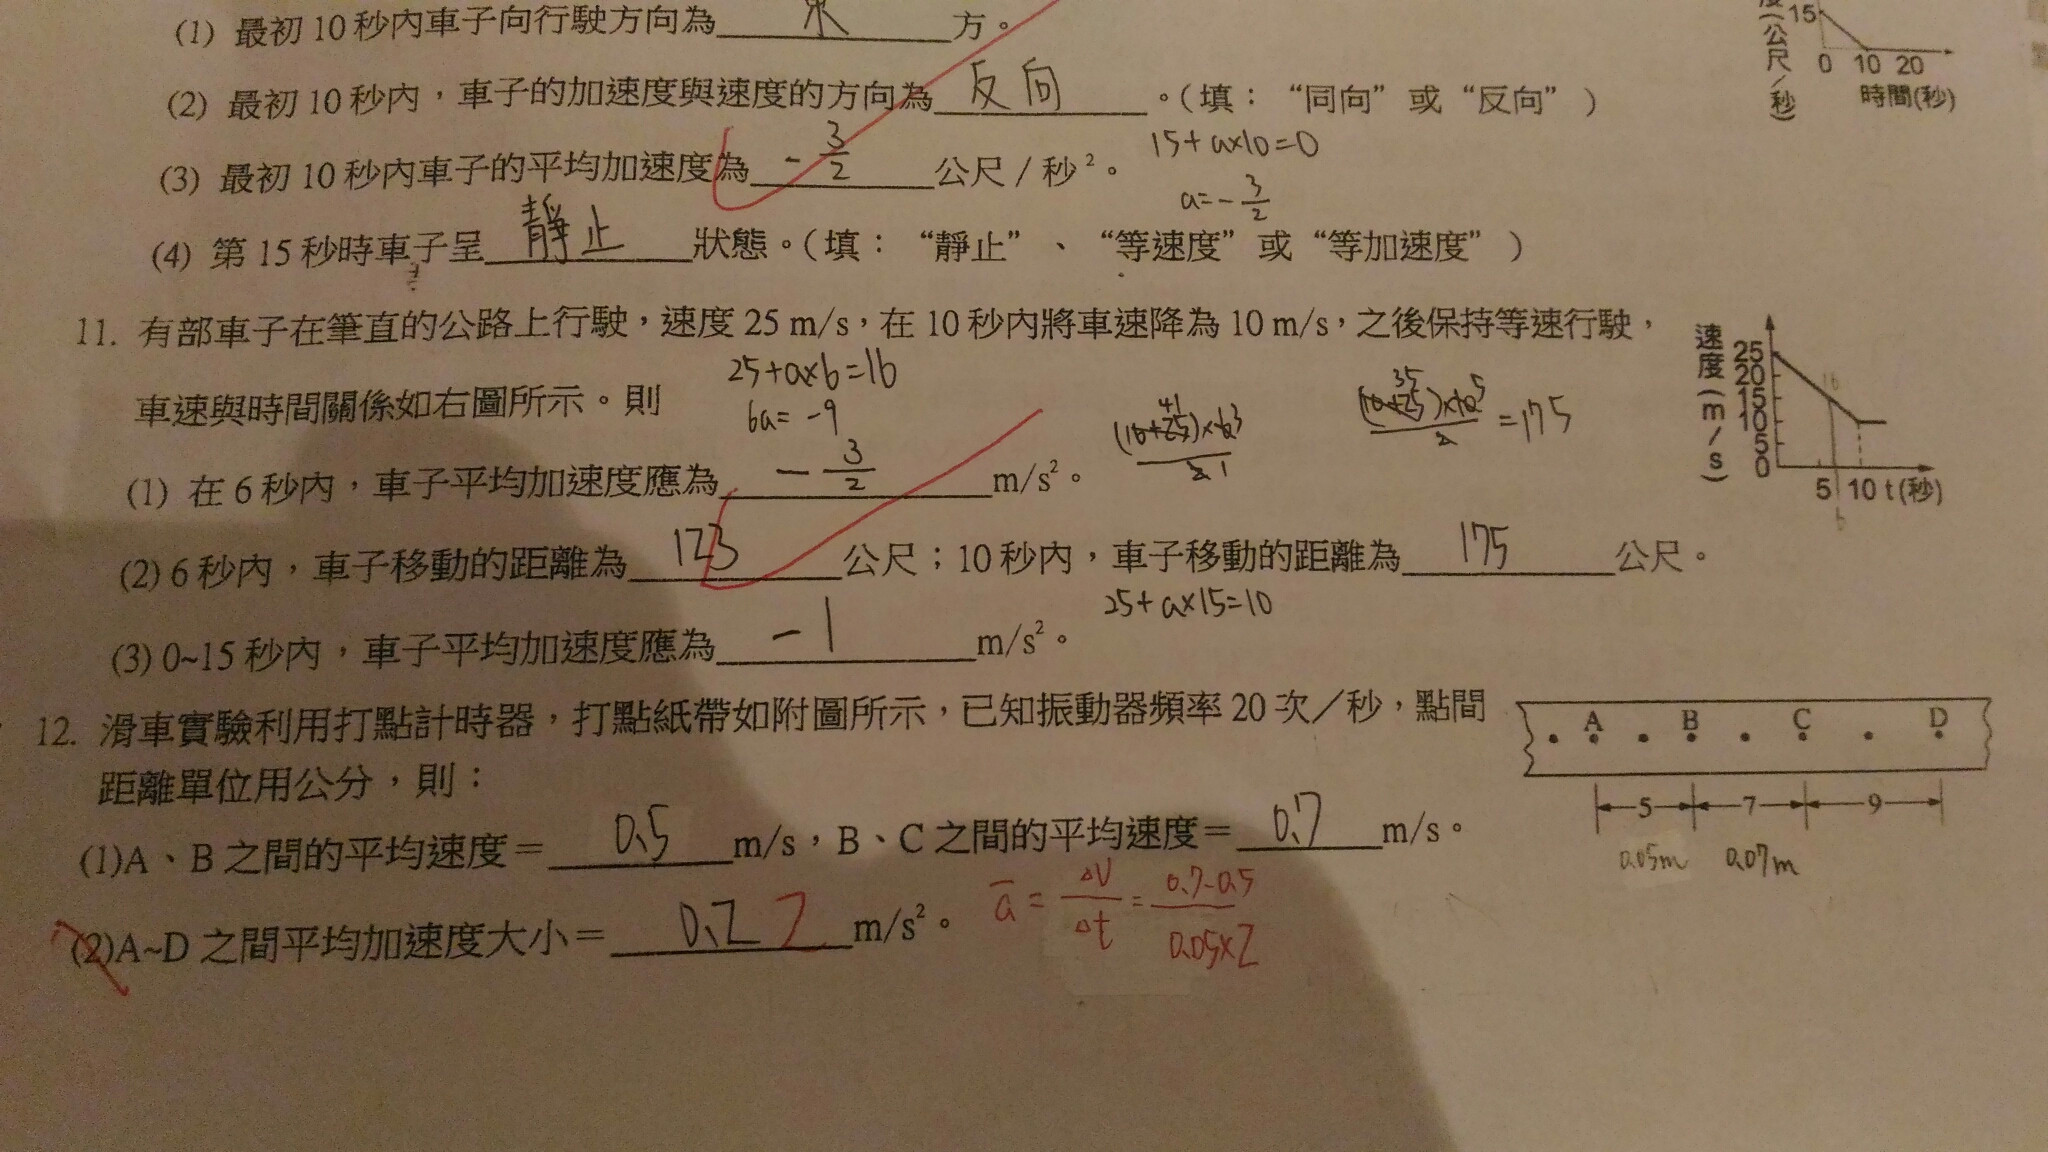 (1) 最初 10 秒內車子向行駛方向為 東 方。
(2) 最初 10 秒內，車子的加速度與速度的方向為 反向 。(填："同向"或"反向")
(3) 最初 10 秒內車子的平均加速度為 -3/2 公尺/秒²。 15+a×10=0
a=-3/2
(4) 第 15 秒時車子呈 靜止 狀態。(填："靜止"、"等速度"或"等加速度")
15
度(公尺/秒)
0 10 20
時間(秒)
11. 有部車子在筆直的公路上行駛，速度 25 m/s，在 10 秒內將車速降為 10 m/s，之後保持等速行駛，
車速與時間關係如右圖所示。則
25+a×6=16
6a=-9
(16+25)×6 41 3
2 1
(10+25)×10 35 5
2
=175
(1) 在 6 秒內，車子平均加速度應為 -3/2 m/s²。
(2) 6 秒內，車子移動的距離為 123 公尺；10 秒內，車子移動的距離為 175 公尺。
25+a×15=10
(3) 0~15 秒內，車子平均加速度應為 -1 m/s²。
速度(m/s)
25
20
15
10
5
0
16
5 10 t(秒)
6
12. 滑車實驗利用打點計時器，打點紙帶如附圖所示，已知振動器頻率 20 次／秒，點間
距離單位用公分，則：
A B C D
5 7 9
0.05m 0.07m
(1)A、B 之間的平均速度＝ 0.5 m/s，B、C 之間的平均速度＝ 0.7 m/s。
(2)A~D 之間平均加速度大小＝ 0.2 2 m/s²。 a̅ = ΔV/Δt = 0.7-0.5/0.05×2